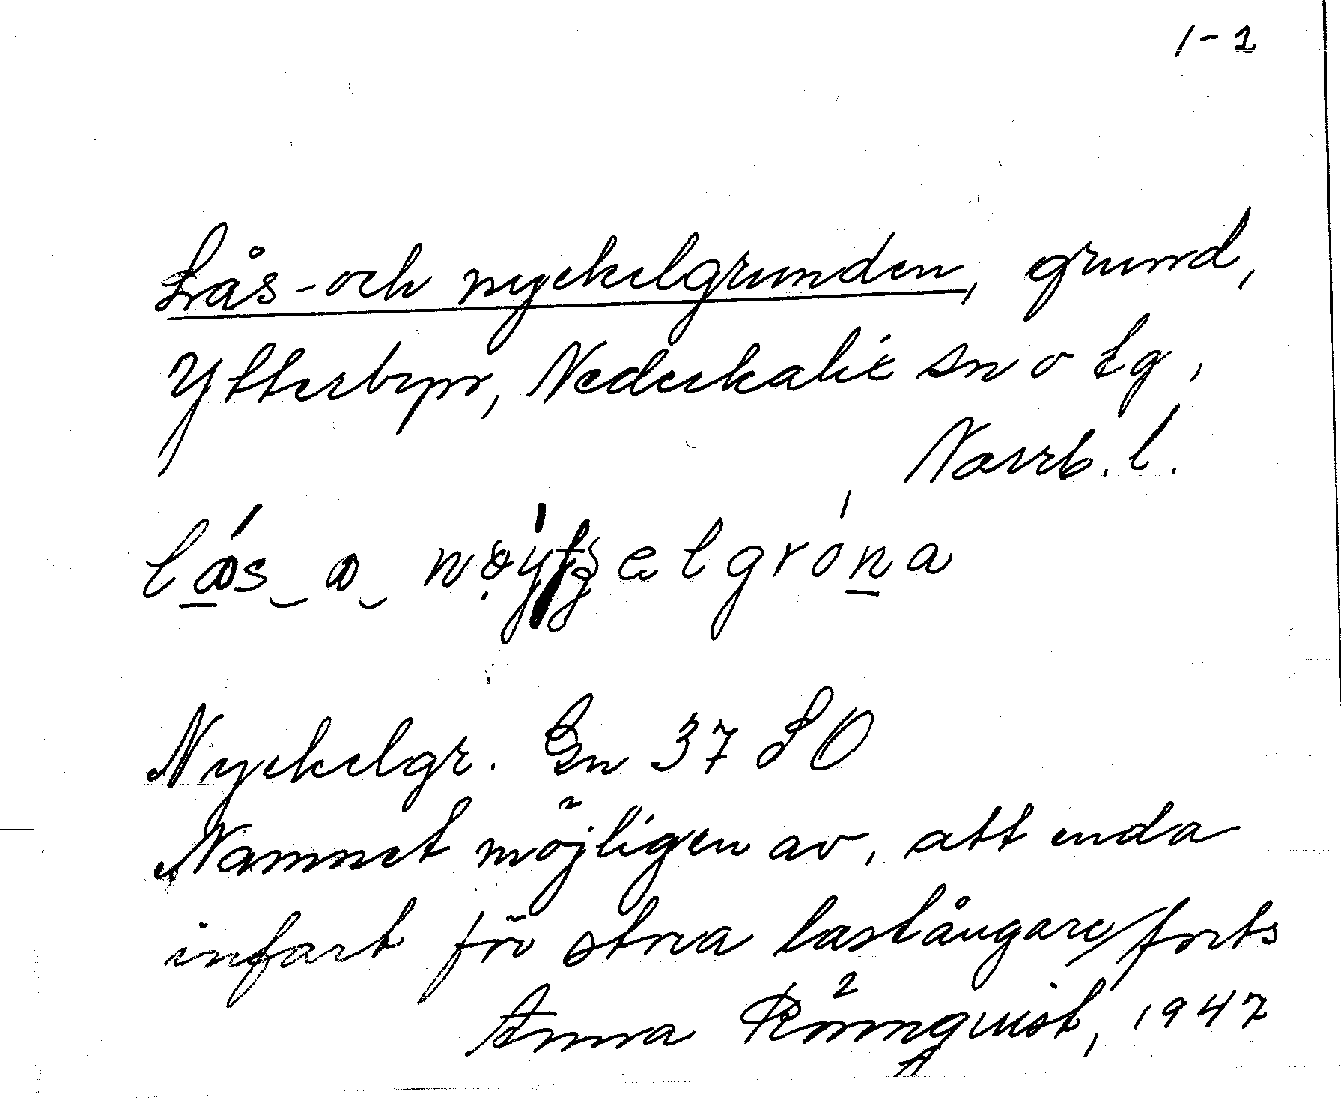 1-2
Lås- och nyckelgrunden, grund,
Ytterbyn, Nederkalix sn o tg,
Norrb. l.
Nyckelgr. Gn 37 SO
Namnet möjligen av, att enda
infart för stora lastångare/forts
Anna Rönnqvist, 1947